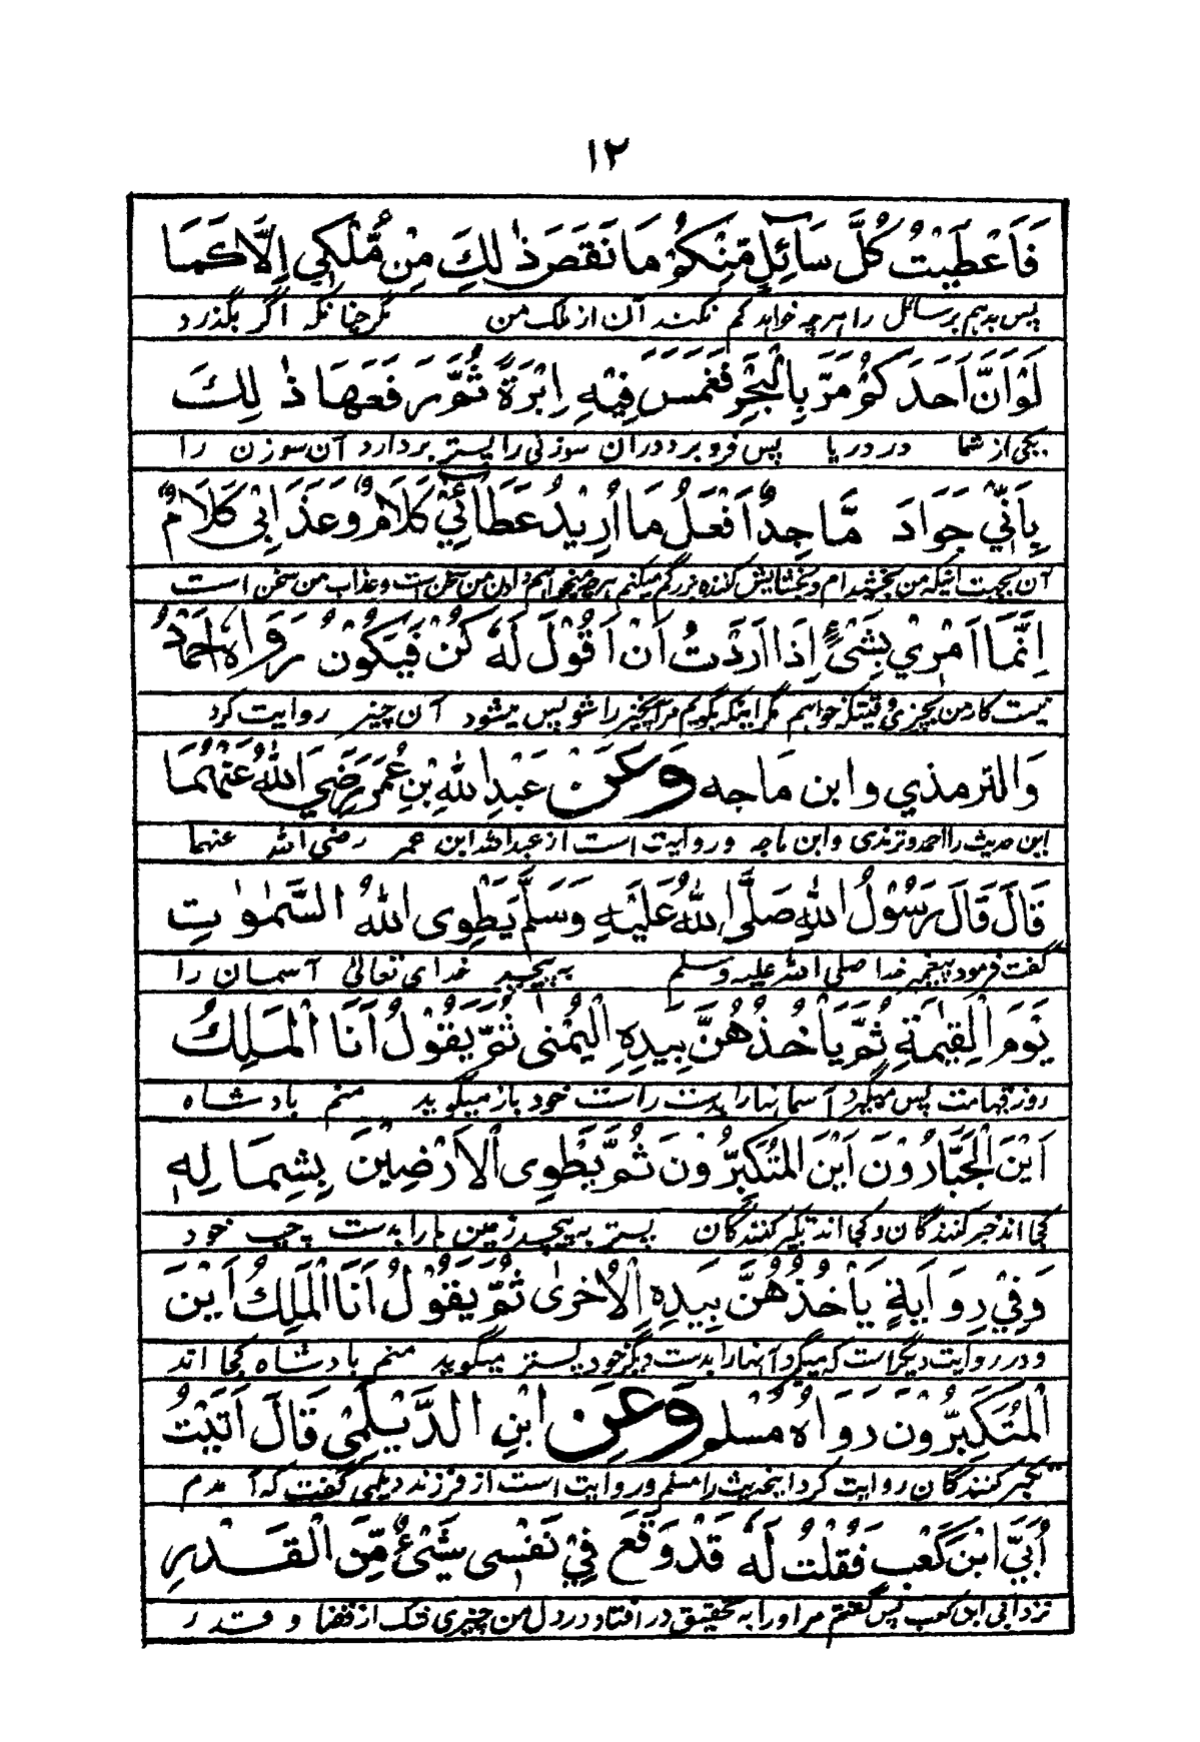 ۱۲
فَاَعْطَيْتُ كُلَّ سَآئِلٍ مِّنْكُمْ مَا نَقَصَ ذٰلِكَ مِنْ مُّلْكِي اِلَّا كَمَا
پس بدہم ہر سائل را ہرچہ خواہد کم نکند آن از ملک من مگر چنانکہ اگر بگذرد
لَوْ اَنَّ اَحَدَكُمْ مَرَّ بِالْبَحْرِ فَغَمَسَ فِيْهِ اِبْرَةً ثُمَّ رَفَعَهَا ذٰلِكَ
یکی از شما در دریا پس فرو برد دران سوزنی را پستر بردارد آن سوزن را
بِاَنِّي جَوَادٌ مَّاجِدٌ اَفْعَلُ مَا اُرِيْدُ عَطَائِيْ كَلَامٌ وَعَذَابِیْ كَلَامٌ
آن بجهت اینکه من بخشنده ام و بخشایش کننده بزرگم میکنم هرچه میخواهم دادن من سخن است و عذاب من سخن است
اِنَّمَا اَمْرِيْ بِشَيْءٍ اِذَا اَرَدْتُ اَنْ اَقُوْلَ لَهٗ كُنْ فَيَكُوْنُ رَوَاهُ اَحْمَدُ
نیست کار من بچیزی وقتیکه خواهم مگر اینکه بگویم مر آنچیز را شو پس میشود آن چیز روایت کرد
وَالترمذي وابن مَاجه وَعَنْ عَبْدِ اللهِ بْنِ عُمَرَ رَضِيَ اللهُ عَنْهُمَا
این حدیث را احمد و ترمذی و ابن ماجه و روایت است از عبدالله ابن عمر رضی الله عنهما
قَالَ قَالَ رَسُوْلُ اللهِ صَلَّى اللهُ عَلَيْهِ وَسَلَّمَ يَطْوِى اللهُ السَّمٰوٰتِ
گفت فرمود پیغمبر خدا صلی الله علیه و سلم به پیچید خدای تعالی آسمان را
يَوْمَ الْقِيٰمَةِ ثُمَّ يَاْخُذُهُنَّ بِيَدِهِ الْيُمْنٰى ثُمَّ يَقُوْلُ اَنَا الْمَلِكُ
روز قیامت پس میگیرد آسمانها را بدست راست خود باز میگوید منم بادشاه
اَيْنَ الْجَبَّارُوْنَ اَيْنَ الْمُتَكَبِّرُوْنَ ثُمَّ يَطْوِى الْاَرْضِيْنَ بِشِمَالِهٖ
کجا اند جبر کنندگان و کجا اند تکبر کنندگان پستر به پیچد زمین ها را بدست چپ خود
وَفِيْ رِوَايَةٍ يَاْخُذُهُنَّ بِيَدِهِ الْاُخْرٰى ثُمَّ يَقُوْلُ اَنَا الْمَلِكُ اَيْنَ
و در روایت دیگر است که میگیرد آنها را بدست دیگر خود پستر میگوید منم بادشاه کجا اند
الْمُتَكَبِّرُوْنَ رَوَاهُ مُسْلم وَعَنِ ابْنِ الدَّيْلَمِيْ قَالَ اَتَيْتُ
تکبر کنندگان روایت کرد اینحدیث را مسلم و روایت است از فرزند دیلمی گفت که آمدم
اُبَيَّ ابْنَ كَعْبٍ فَقُلْتُ لَهٗ قَدْ وَقَعَ فِيْ نَفْسِى شَيْءٌ مِّنَ الْقَدْرِ
نزد ابی ابن کعب پس گفتم مر او را به تحقیق در افتاد در دل من چیزی شک از قضا و قدر